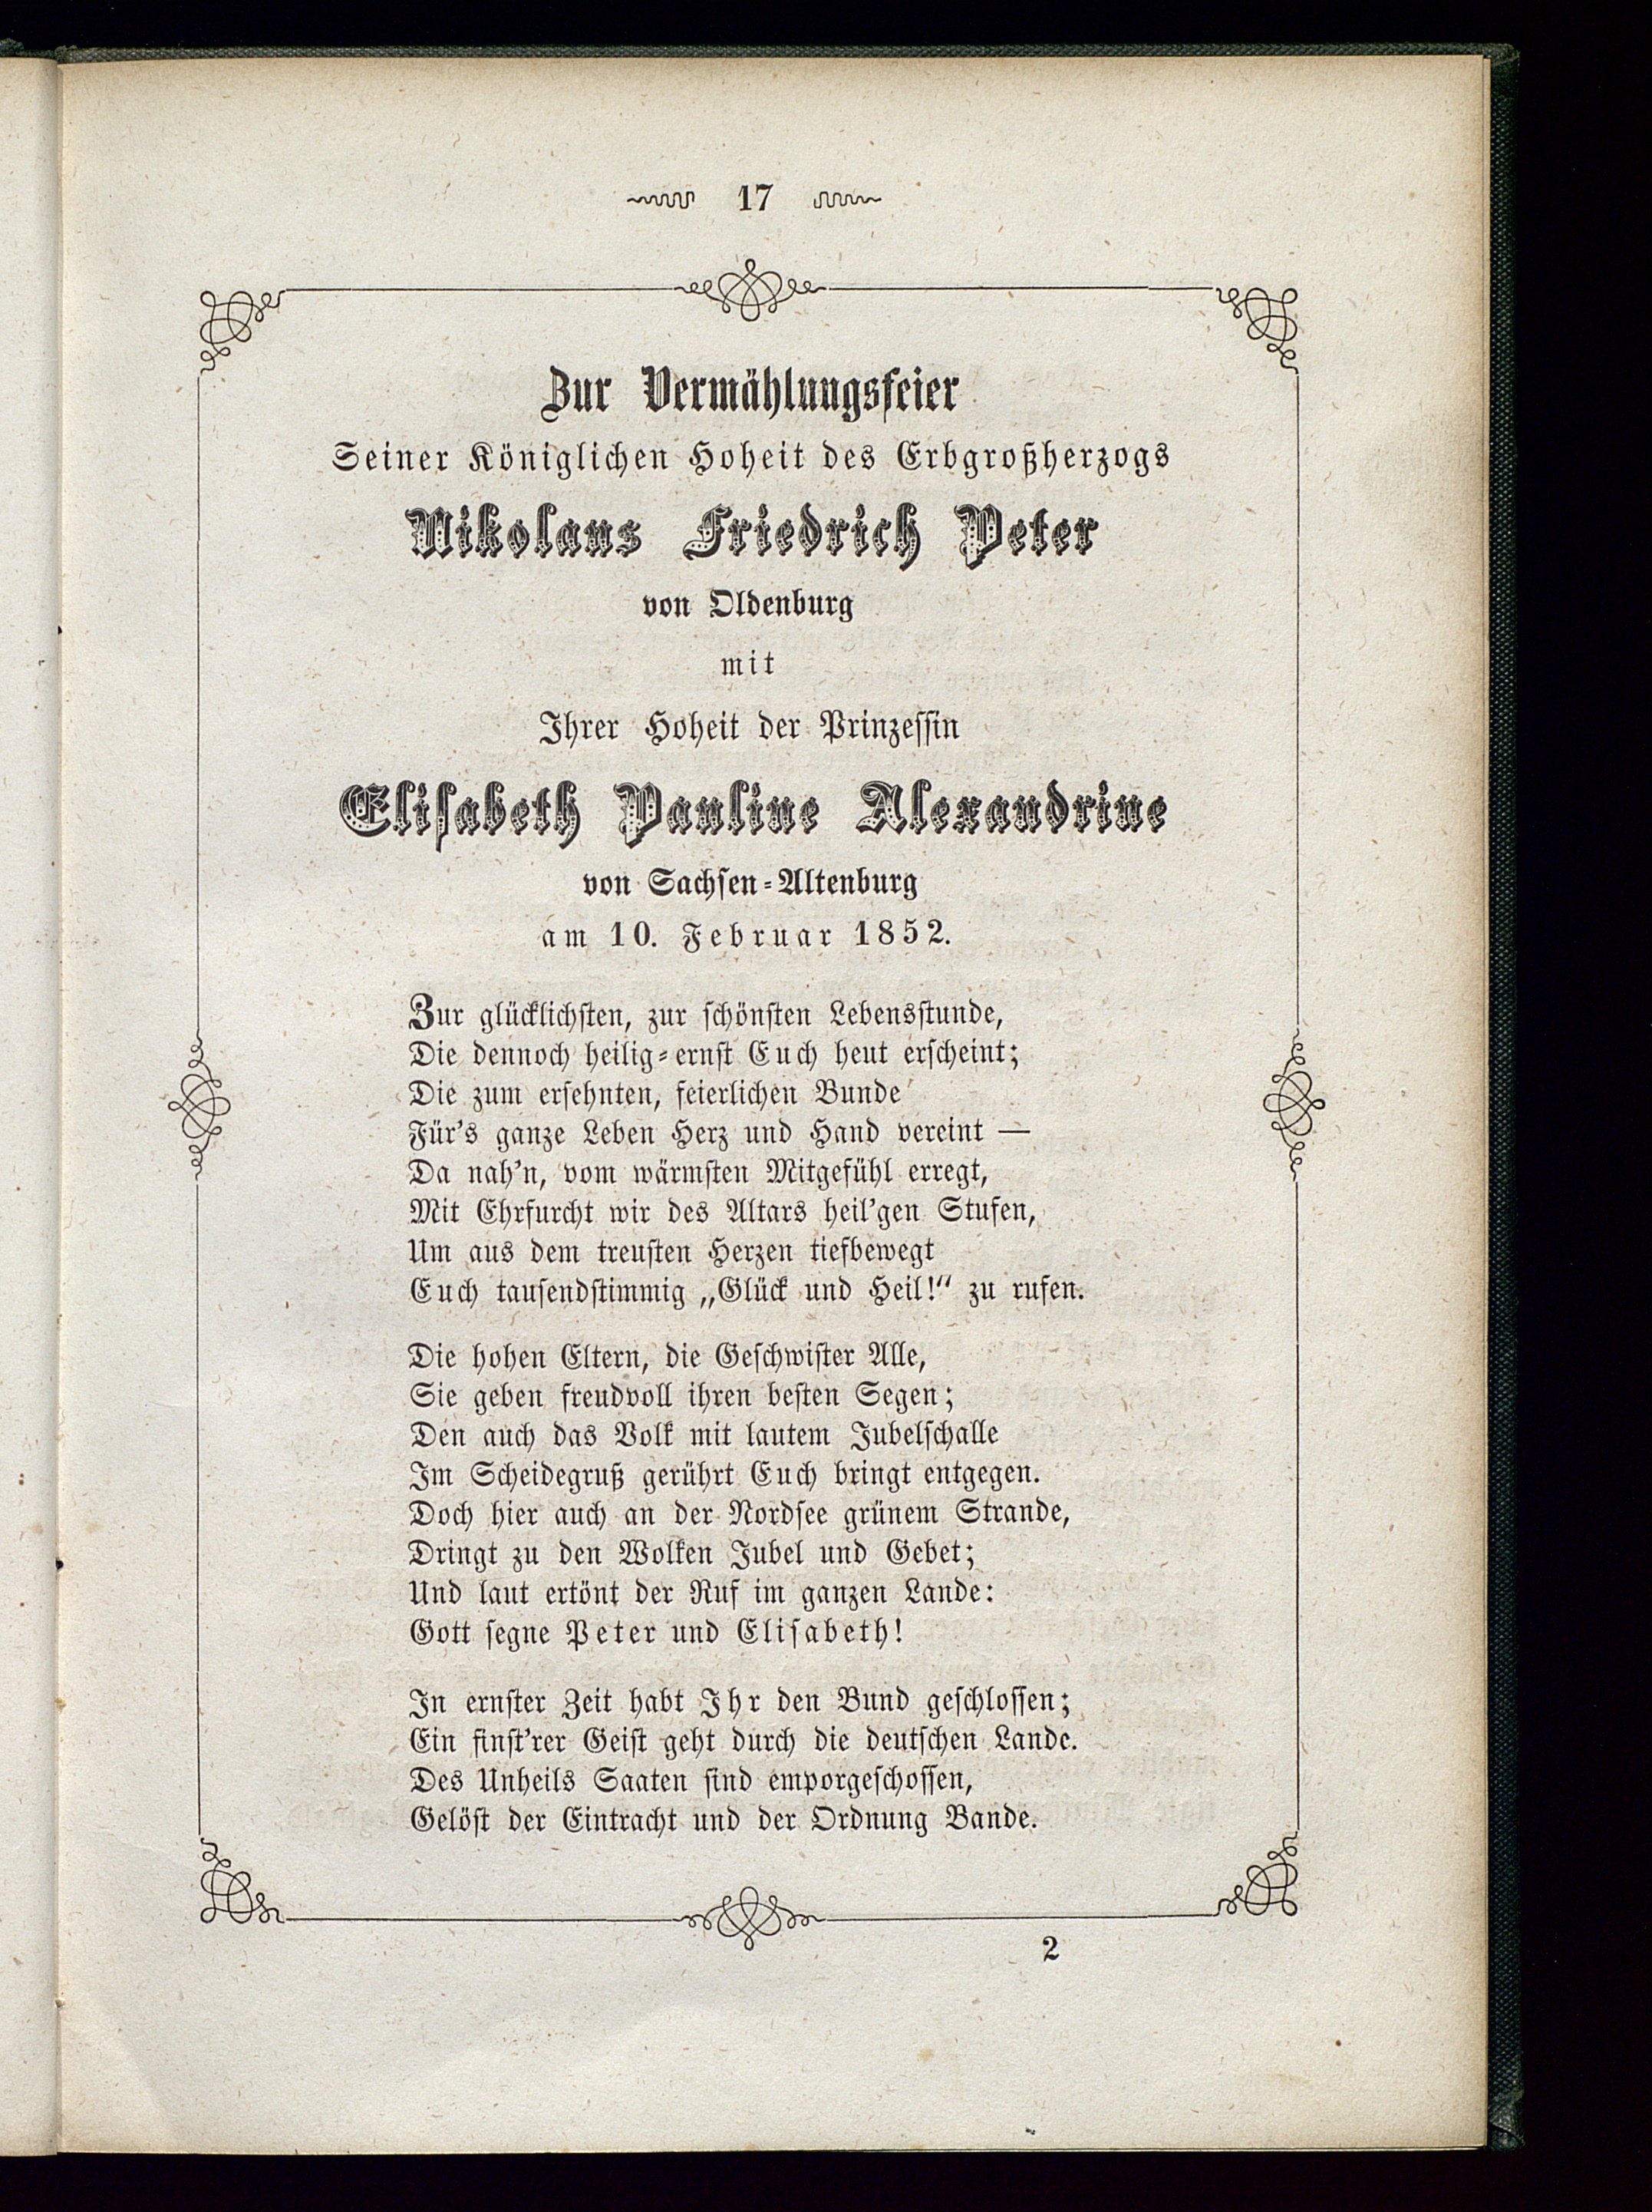 17
Zur Vermählungsfeier
Seiner Königlichen Hoheit des Erbgroßherzogs
Nikolaus Friedrich Peter
von Oldenburg
mit
Ihrer Hoheit der Prinzessin
Elisabeth Pauline Alexandrine
von Sachsen-Altenburg
am 10. Februar 1852.
Zur glücklichsten, zur schönsten Lebensstunde,
Die dennoch heilig-ernst Euch heut erscheint;
Die zum ersehnten, feierlichen Bunde
Für's ganze Leben Herz und Hand vereint —
Da nah'n, vom wärmsten Mitgefühl erregt,
Mit Ehrfurcht wir des Altars heil'gen Stufen,
Um aus dem treusten Herzen tiefbewegt
Euch tausendstimmig „Glück und Heil!“ zu rufen.
Die hohen Eltern, die Geschwister Alle,
Sie geben freudvoll ihren besten Segen;
Den auch das Volk mit lautem Jubelschalle
Im Scheidegruß gerührt Euch bringt entgegen.
Doch hier auch an der Nordsee grünem Strande,
Dringt zu den Wolken Jubel und Gebet;
Und laut ertönt der Ruf im ganzen Lande:
Gott segne Peter und Elisabeth!
In ernster Zeit habt Ihr den Bund geschlossen;
Ein finst'rer Geist geht durch die deutschen Lande.
Des Unheils Saaten sind emporgeschossen,
Gelöst der Eintracht und der Ordnung Bande.
2